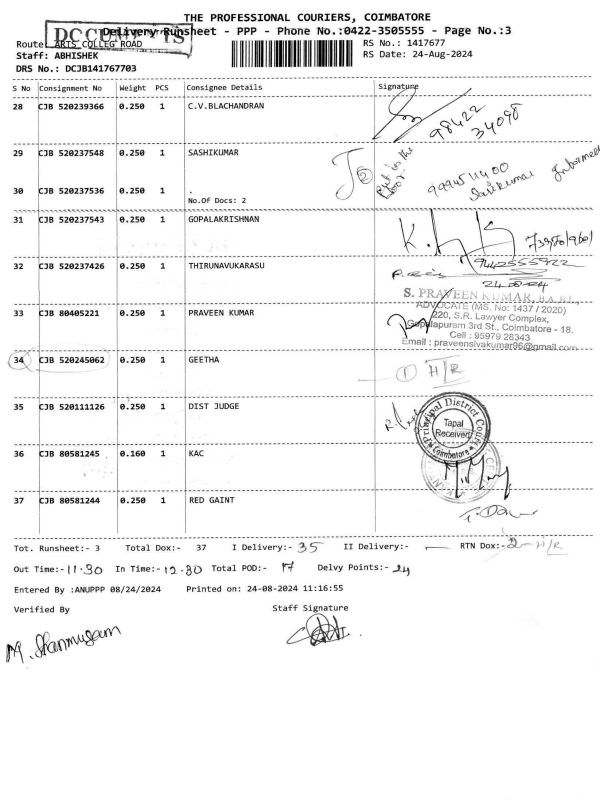 THE PROFESSIONAL COURIERS, COIMBATORE
DOCUMENTS
Delivery Runsheet - PPP - Phone No.:0422-3505555 - Page No.:3
Route: ARTS COLLEG ROAD
RS No.: 1417677
Staff: ABHISHEK
RS Date: 24-Aug-2024
DRS No.: DCJB141767703
S No Consignment No Weight PCS Consignee Details Signature
28 CJB 520239366 0.250 1 C.V.BLACHANDRAN
98422
34098
29 CJB 520237548 0.250 1 SASHIKUMAR
Put in the
Door.
9994511400
Sasikumar
Informed
30 CJB 520237536 0.250 1 .
No.Of Docs: 2
31 CJB 520237543 0.250 1 GOPALAKRISHNAN
32 CJB 520237426 0.250 1 THIRUNAVUKARASU
9442555922
24-08-24
33 CJB 80405221 0.250 1 PRAVEEN KUMAR
S. PRAVEEN KUMAR, B.A.BL.,
ADVOCATE (MS. No: 1437 / 2020)
220, S.R. Lawyer Complex,
Gopalapuram 3rd St., Coimbatore - 18.
Cell : 95979 28343
Email : praveensivakumar96@gmail.com
34 CJB 520245062 0.250 1 GEETHA
1 H/R
35 CJB 520111126 0.250 1 DIST JUDGE
Principal District Court
Tapal
Received
Coimbatore
36 CJB 80581245 0.160 1 KAC
37 CJB 80581244 0.250 1 RED GAINT
Tot. Runsheet:- 3 Total Dox:- 37 I Delivery:- 35 II Delivery:- — RTN Dox:- 2 - H/R
Out Time:- 11.30 In Time:- 12.30 Total POD:- 17 Delvy Points:- 24
Entered By :ANUPPP 08/24/2024 Printed on: 24-08-2024 11:16:55
Verified By Staff Signature
M. Shanmugam